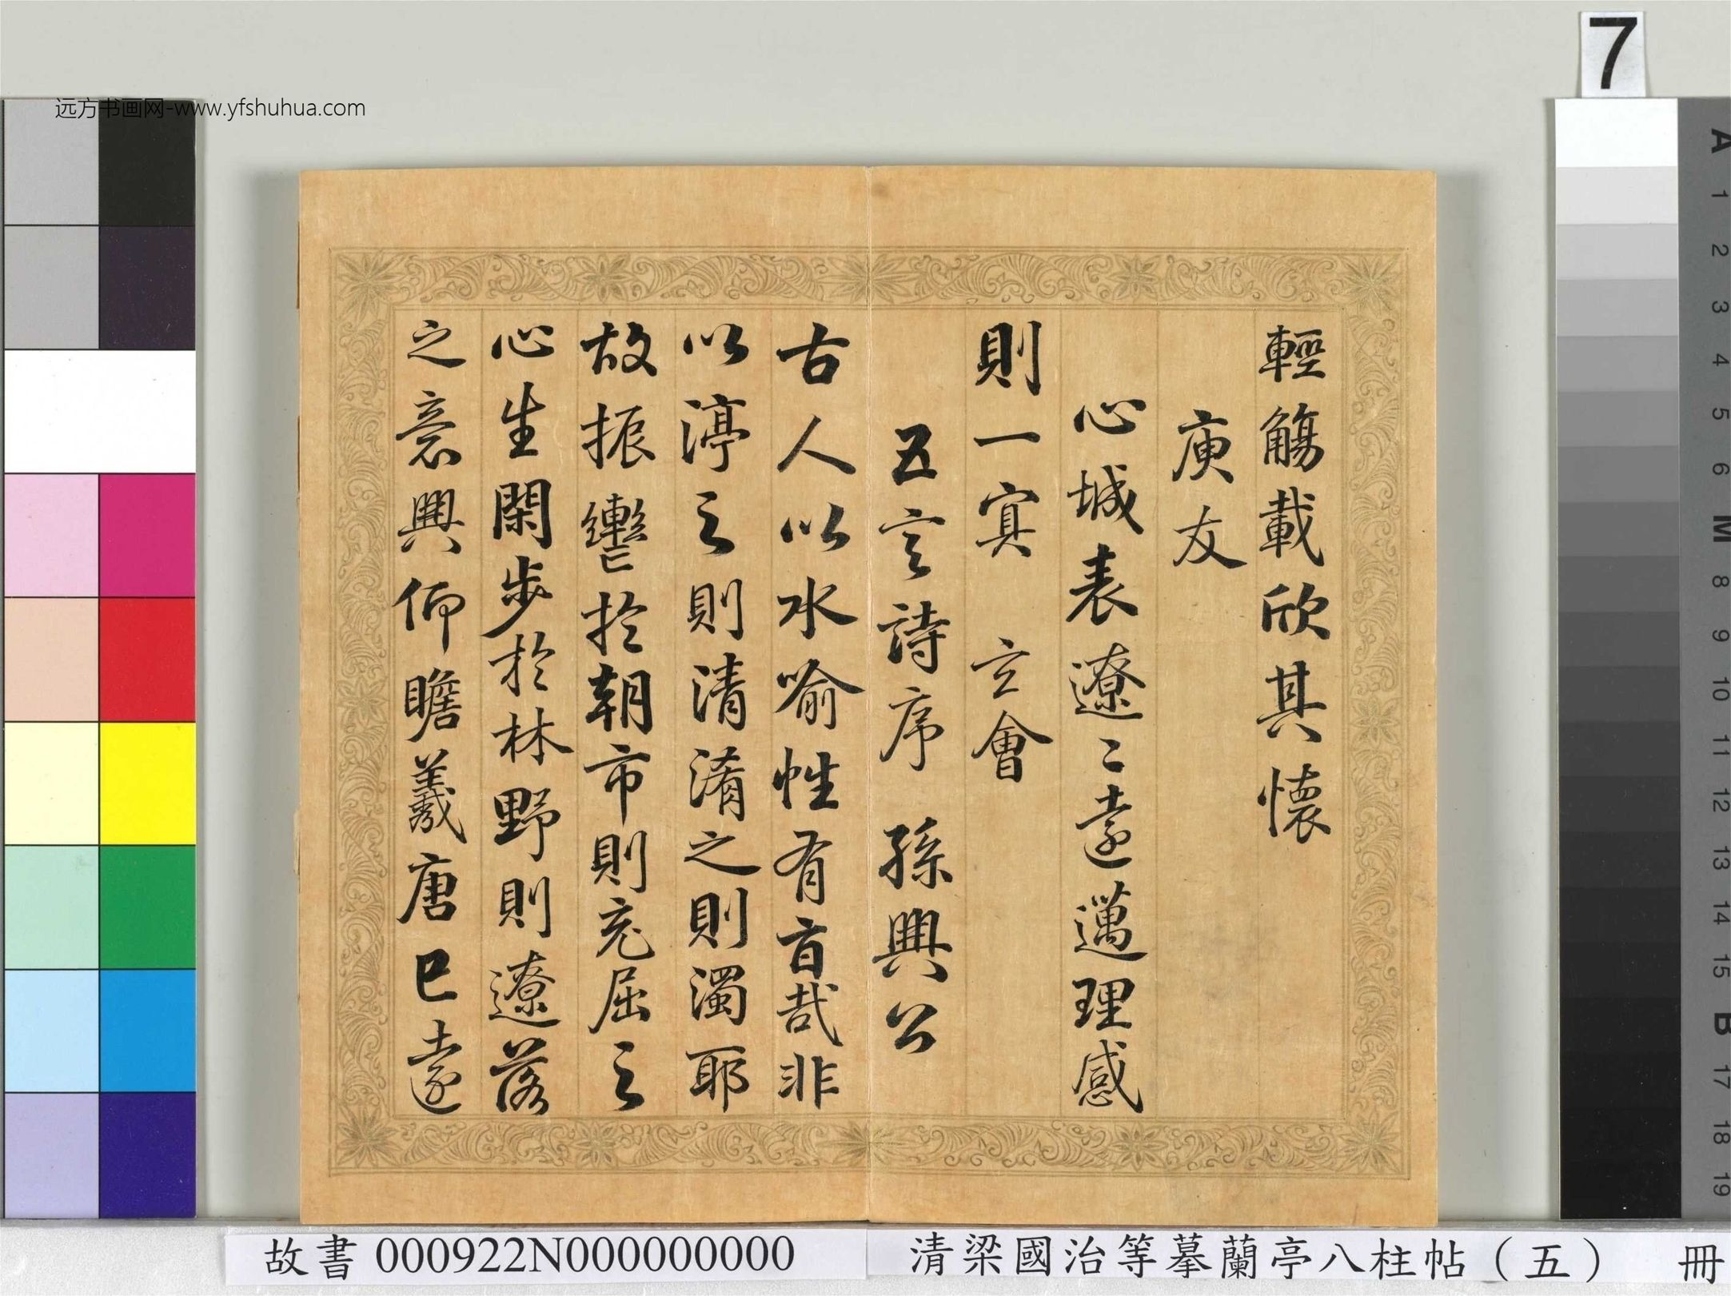 7
远方书画网-www.yfshuhua.com
輕觴載欣其懷
庾友
心城表遼〻遠邁理感
則一寘 玄會
五言詩序 孫興公
古人以水喻性有旨哉非
以渟之則清淆之則濁耶
故振轡於朝市則充屈之
心生閑步於林野則遼落
之意興仰瞻羲唐已遠
A
1
2
3
4
5
6
M
8
9
10
11
12
13
14
15
B
17
18
19
故書 000922N000000000
清梁國治等摹蘭亭八柱帖（五） 冊